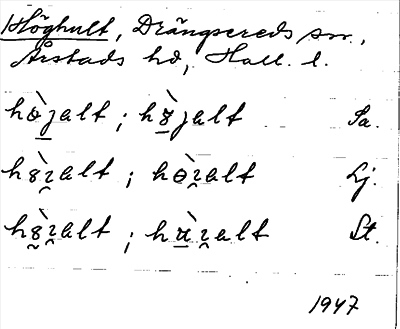 Höghult, Drängsereds sn.,
Årstads hd, Hall. l.
hɵ̀ȷalt ; h8̀ȷalt Sa.
h8̀ɿalt ; hɵ̀ɿalt Lj.
h8̀ɿalt ; hʉ̀ɿalt St.
1947